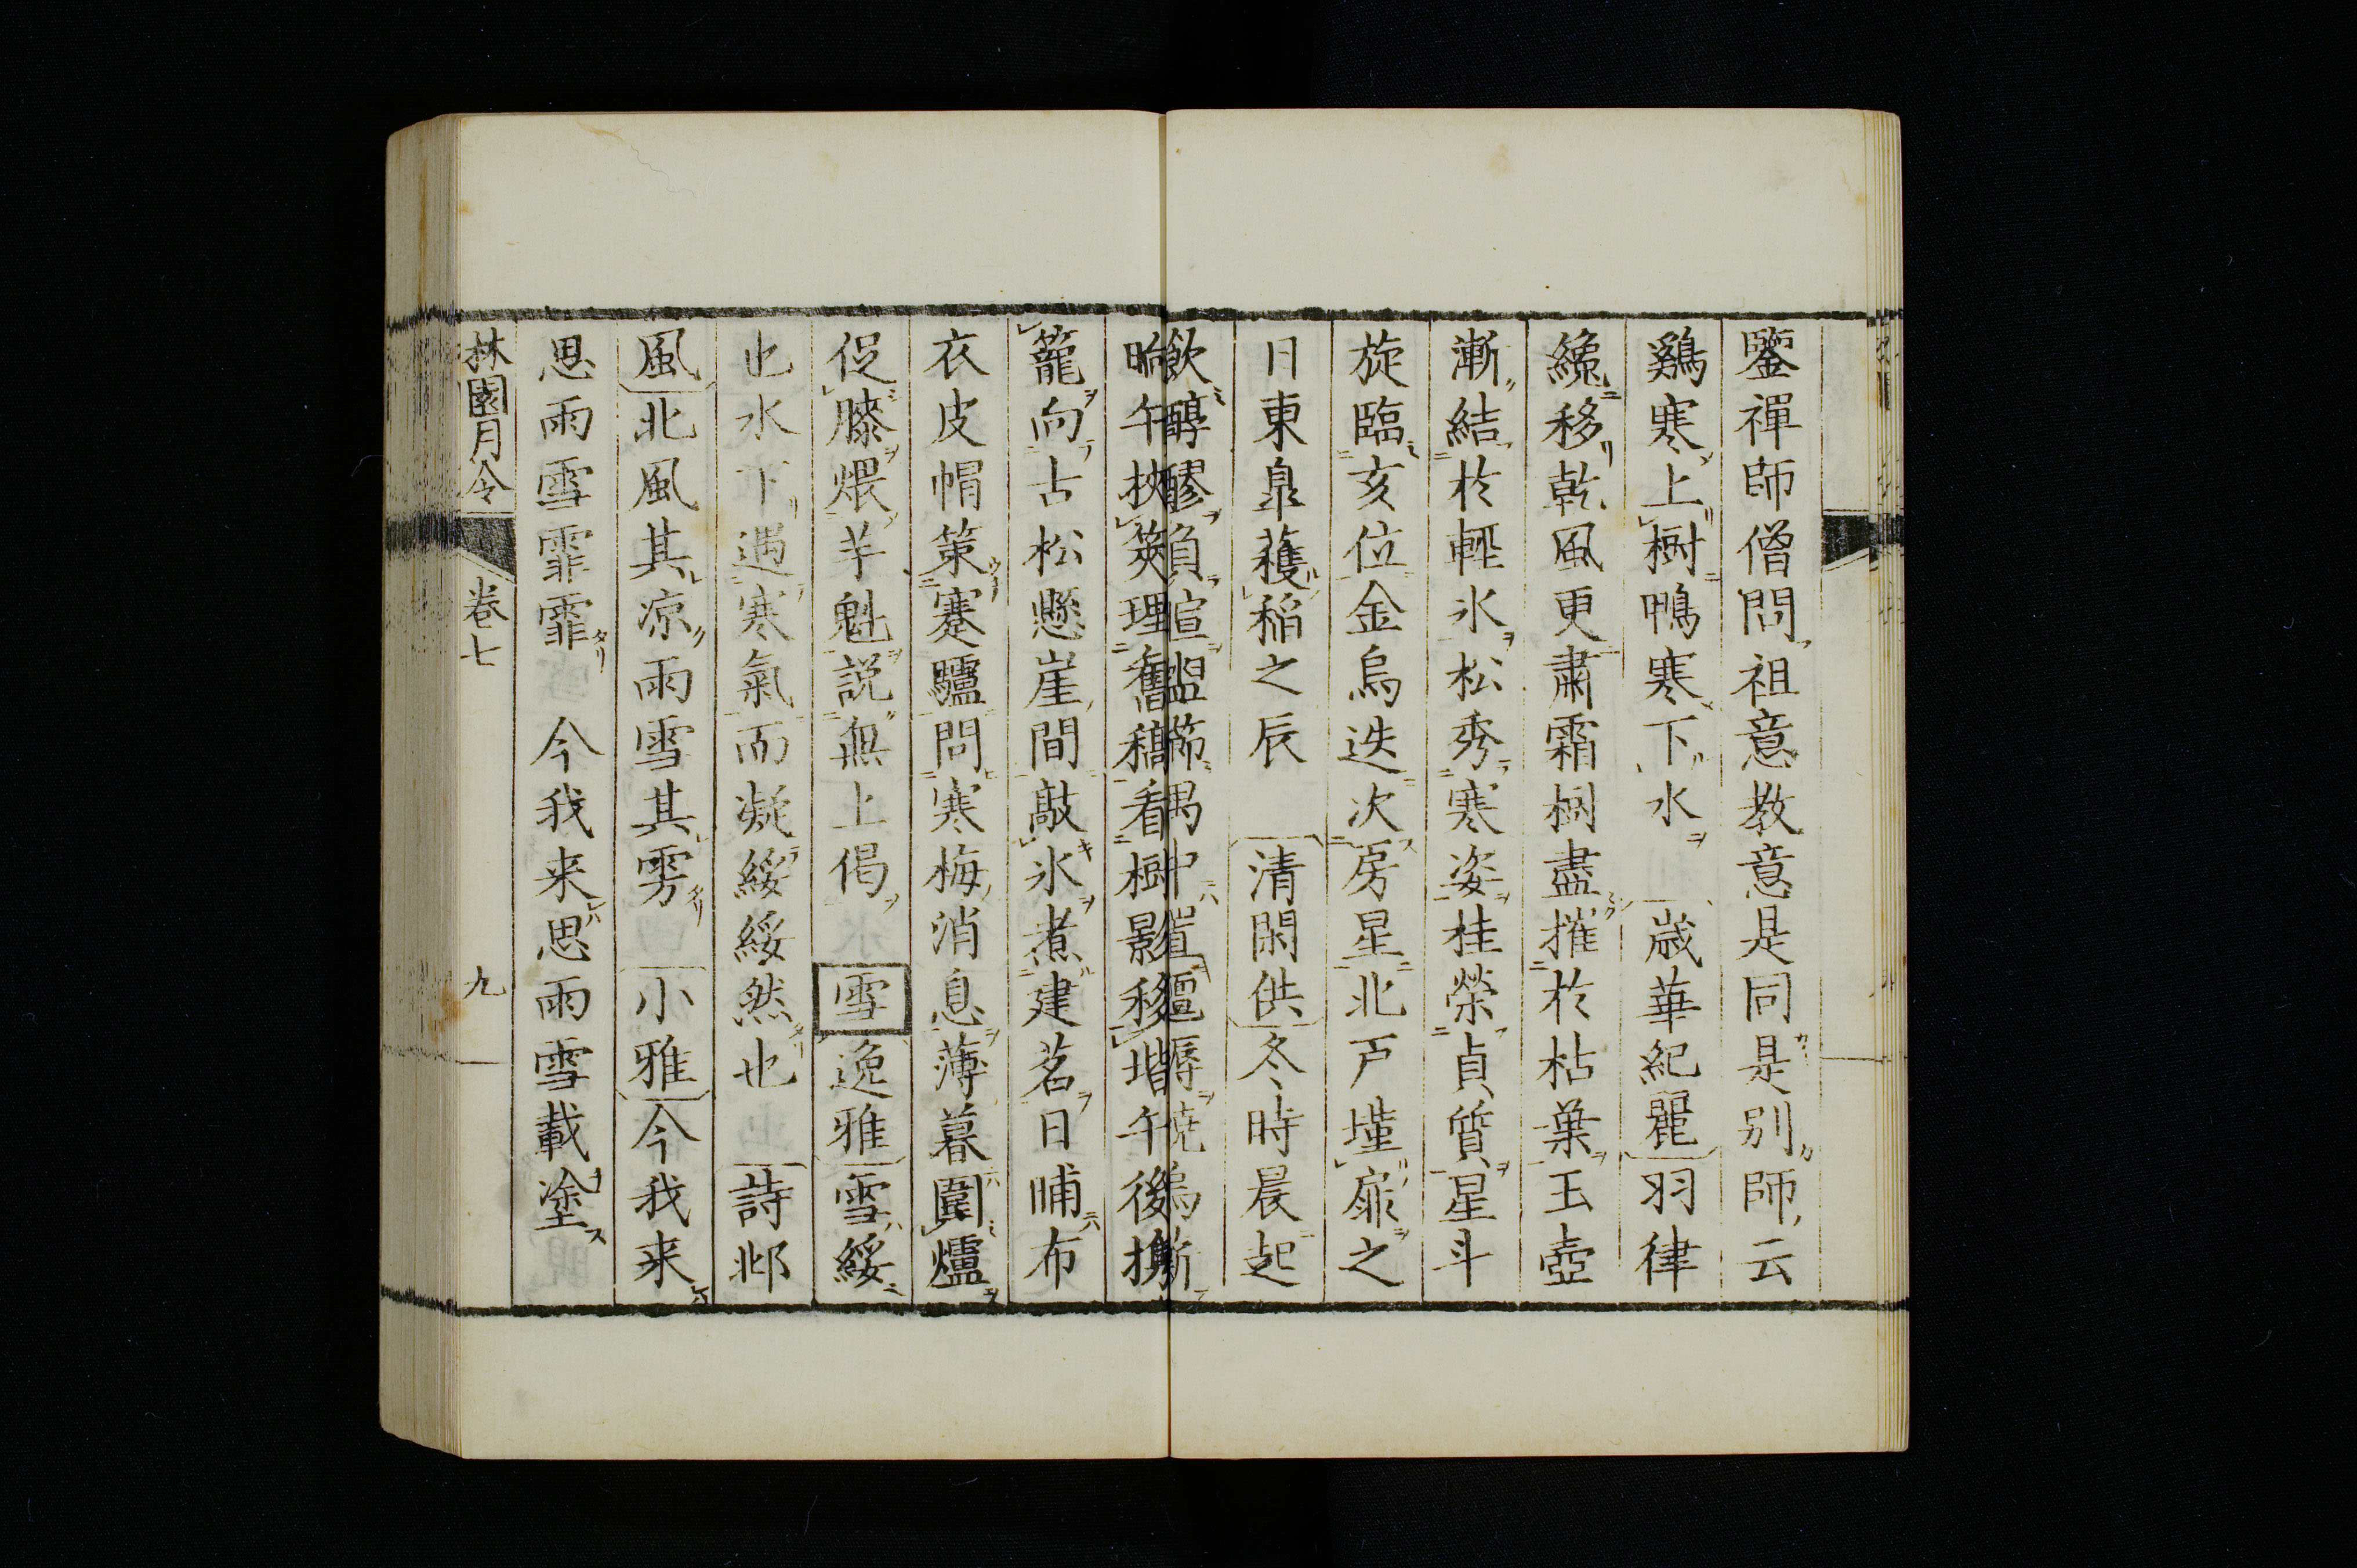 鑒禪師僧問祖意教意是同是別師云
鷄寒上樹鴨寒下水　歳華紀麗羽律
纔移乾風更肅霜樹盡摧於枯葉玉壺
漸結於輕氷松秀寒姿桂榮貞質星斗
旋臨亥位金烏迭次房星北戸墐扉之
日東皐蒦稲之辰　清閑供冬時晨起
飲醇醪負暄盥櫛禺中置氊褥焼烏薪
晌午挾筴理舊稿看樹影移堦午後攜
籠向古松懸崖間敲氷煮建茗日晡布
衣皮帽策蹇驢問寒梅消息薄暮圍爐
促膝煨芋魁説無上偈　雪逸雅雪綏
也水下遇寒氣而凝綏綏然也　詩邶
風北風其凉雨雪其雱　小雅今我来
思雨雪霏霏　今我来思雨雪載塗
林園月令　卷七　九